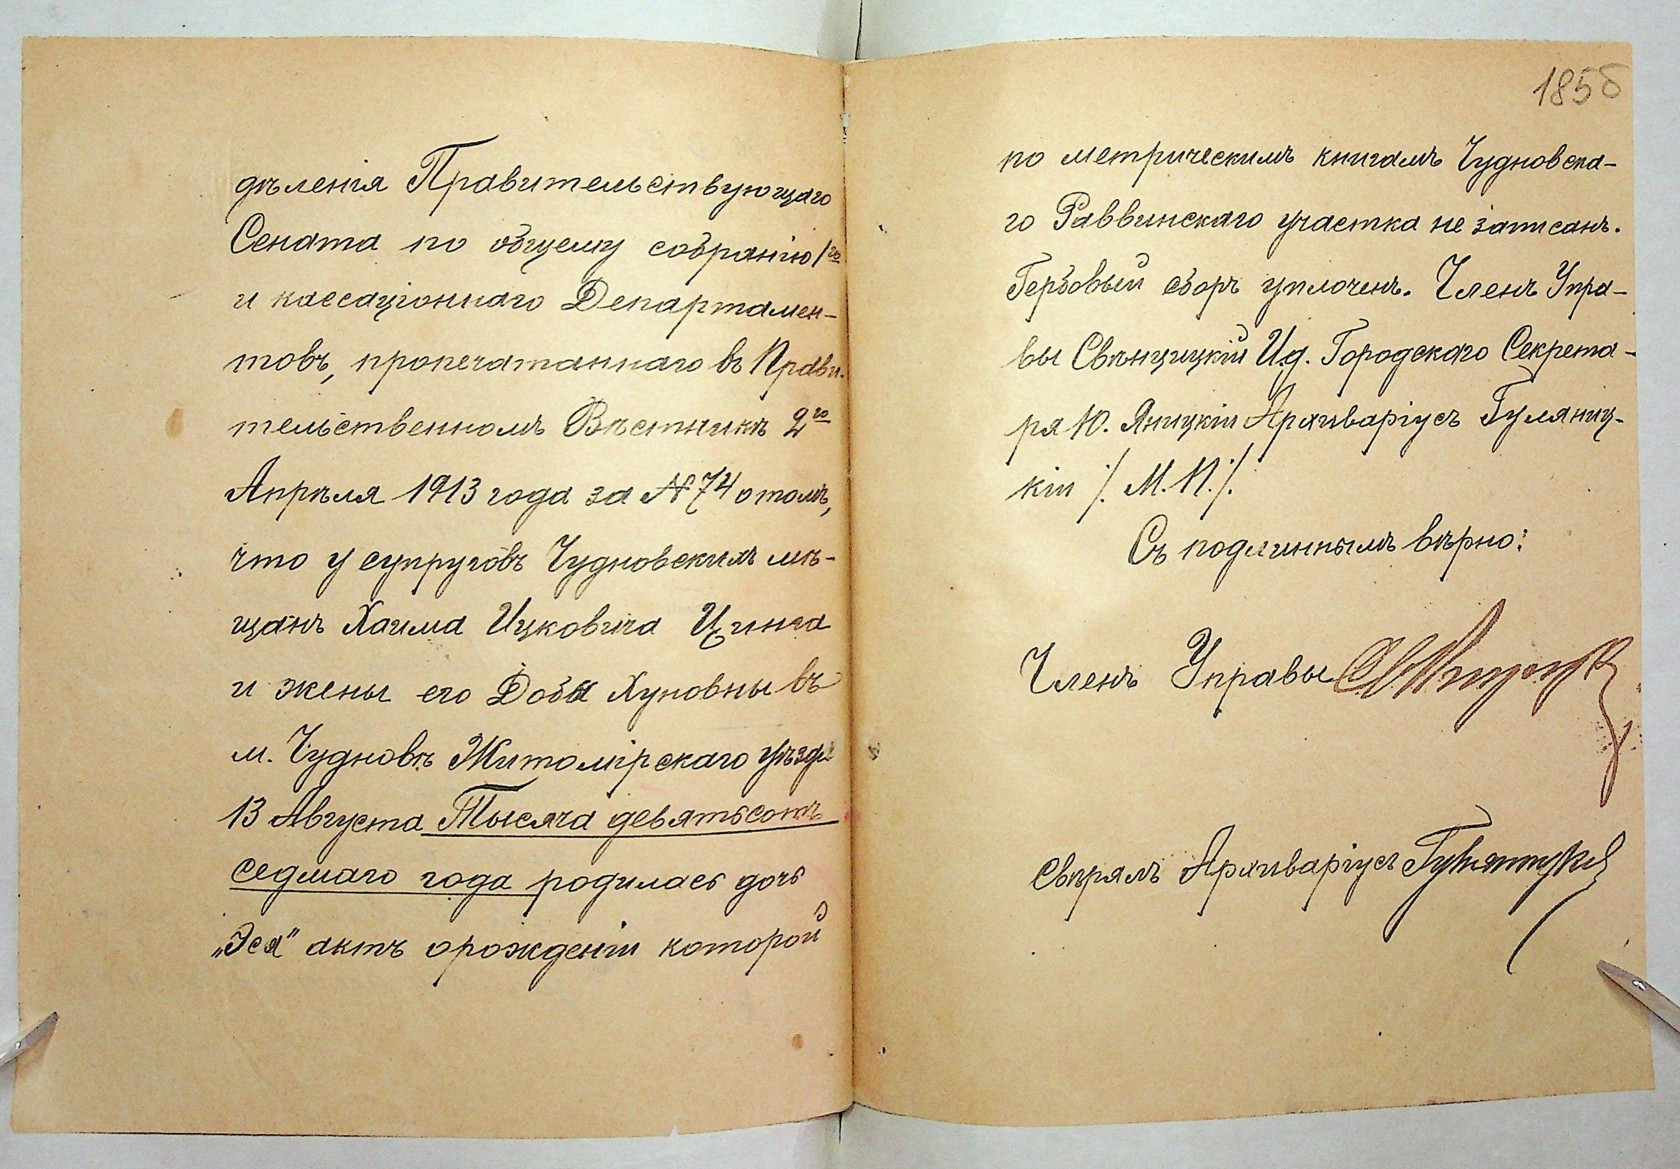 дѣленія Правительствующаго
Сената по общему собранію 1го
и кассаціоннаго Департамен-
товъ, пропечатаннаго въ Прави-
тельственномъ Вѣстникѣ 2го
Апрѣля 1913 года за № 74 о томъ,
что у супруговъ Чудновскихъ мѣ-
щанъ Хаима Ицковича Цинга
и жены его Добы Хуновны въ
м. Чудновѣ Житомірскаго уѣзда
13 Августа Тысяча девятьсотъ
седмаго года родилась дочь
„Эся" актъ о рожденіи которой
185б
по метрическимъ книгамъ Чудновска-
го Раввинскаго участка не записанъ.
Гербовый сборъ уплоченъ. Членъ Упра-
вы Свѣнцицкій И.д. Городскаго Секрета-
ря Ю. Яницкій Архиваріусъ Гуляниц-
кій /. М.П. /.
Съ подлиннымъ вѣрно:
Членъ Управы
Свѣрялъ Архиваріусъ Гуляницкій